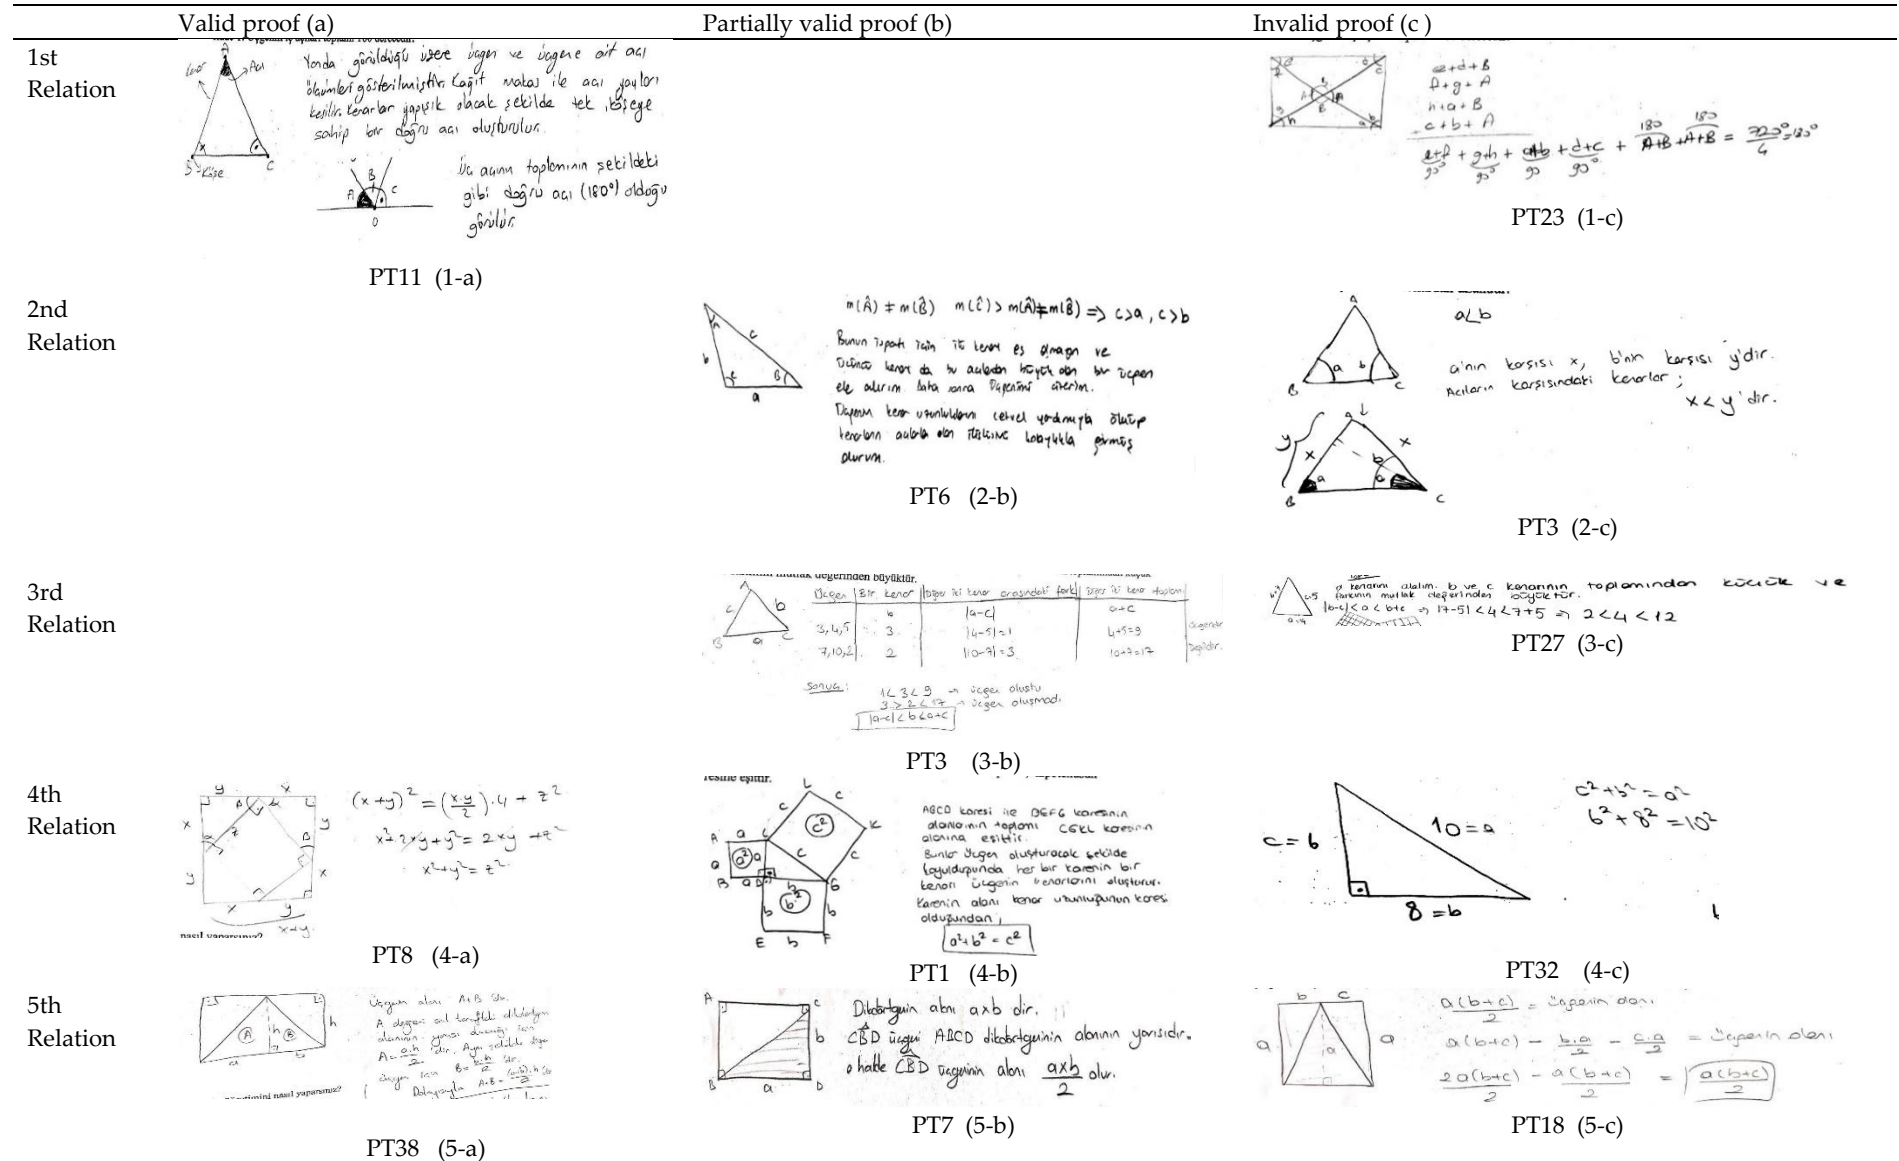 Valid proof (a) Partially valid proof (b) Invalid proof (c )
1st
Relation
A
Açı
B
Köşe
C
Yanda görüldüğü üzere üçgen ve üçgene ait açı
ölçümleri gösterilmiştir. Kağıt makas ile açı yayları
kesilir. Kenarlar yapışık olacak şekilde tek köşeye
sahip bir doğru açı oluşturulur.
A B C
O
Üç açının toplamının şekildeki
gibi doğru açı (180°) olduğu
görülür.
PT11 (1-a)
e+d+B
f+g+A
h+a+B
c+b+A
e+f + g+h + a+b + d+c + A+B + A+B = 720°/4 = 180°
90° 90° 90 90° 180 180
PT23 (1-c)
2nd
Relation
m(Â) ≠ m(B̂) m(Ĉ) > m(Â) ≠ m(B̂) => c>a, c>b
A
b c
C B
a
Bunun ispatı için iki kenarı eş olmayan ve
üçüncü kenarı da bu açılardan büyük olan bir üçgen
ele alırım. Daha sonra üçgenimi çizerim.
Üçgenin kenar uzunluklarını cetvel yardımıyla ölçüp
kenarların açılarla olan ilişkisine kolaylıkla girmiş
olurum.
PT6 (2-b)
A
a<b
a b
B C
a'nın karşısı x, b'nin karşısı y'dir.
Açıların karşısındaki kenarlar;
x<y'dir.
y x x
a b a
B C
PT3 (2-c)
3rd
Relation
değerinden büyüktür.
c b
B a C
Üçgen Bir kenar Diğer iki kenar arasındaki fark Diğer iki kenar toplamı
b |a-c| a+c
3,4,5 3 |4-5|=1 4+5=9 üçgendir
7,10,2 2 |10-7|=3 10+7=17 değildir.
Sonuç: 1<3<9 → üçgen oluştu
3>2<17 → üçgen oluşmadı.
|a-c|<b<a+c
PT3 (3-b)
a kenarını alalım. b ve c kenarının toplamından küçük ve
farkının mutlak değerinden büyüktür.
|b-c|<a<b+c => |7-5|<4<7+5 => 2<4<12
PT27 (3-c)
4th
Relation
y x
x y
z
y x
x y
x+y
(x+y)² = (x.y/2).4 + z²
x²+2xy+y² = 2xy+z²
x²+y²=z²
nasıl yaparsınız?
PT8 (4-a)
resine eşittir.
L
c c
A a C c² K
a a² a c c
B a D b G
b b² b
E b F
ABCD karesi ile DEFG karesinin
alanlarının toplamı CGKL karesinin
alanına eşittir.
Bunlar üçgen oluşturacak şekilde
koyulduğunda her bir karenin bir
kenarı üçgenin kenarlarını oluşturur.
Karenin alanı kenar uzunluğunun karesi
olduğundan,
a²+b²=c²
PT1 (4-b)
c=6
10=a
8=b
c²+b²=a²
6²+8²=10²
PT32 (4-c)
5th
Relation
A h B h
a b
Üçgenin alanı A+B dir.
PT38 (5-a)
A C
b
B a D
Dikdörtgenin alanı axb dir.
CBD üçgeni ABCD dikdörtgeninin alanının yarısıdır.
o halde CBD üçgeninin alanı axb/2 olur.
PT7 (5-b)
b c
a a a
a(b+c)/2 = üçgenin alanı.
a(b+c) - b.a/2 - c.a/2 = üçgenin alanı
2a(b+c)/2 - a(b+c)/2 = a(b+c)/2
PT18 (5-c)